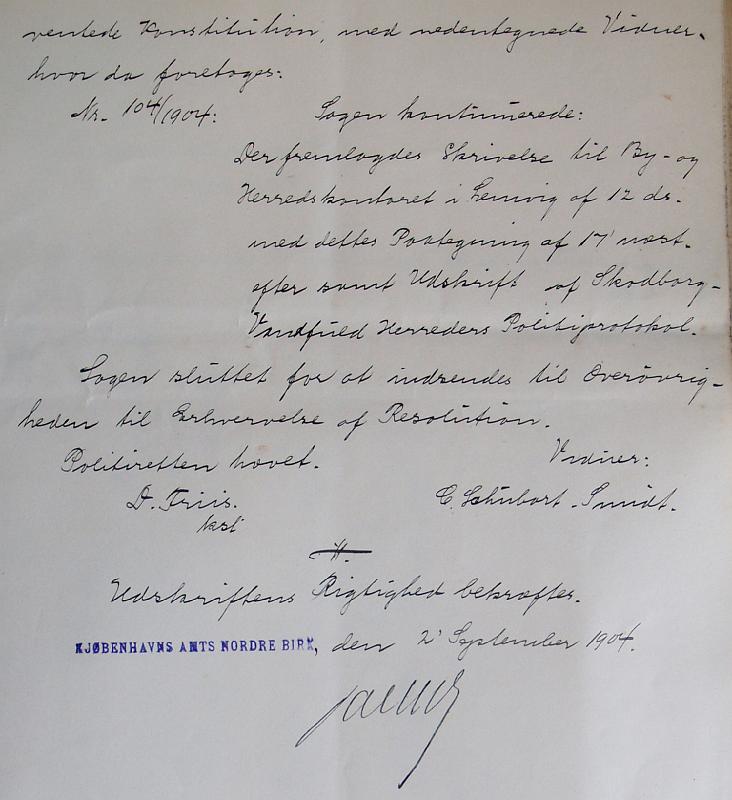 ventede Konstitution, med nedentegnede Vidner.
hvor da foretoges:
Nr. 104/1904: Sagen kontinuerede:
Der fremlagdes Skrivelse til By- og
Herredskontoret i Lemvig af 12 ds.
med dettes Paategning af 17' næst-
efter samt Udskrift af Skodborg-
Vandfuld Herreders Politiprotokol.
Sagen sluttet for at indsendes til Overøvrig-
heden til Erhvervelse af Resolution.
Politiretten hævet.
Vidner:
D. Friis. C. Schubart. Smidt.
kst
Udskriftens Rigtighed bekræfter.
KJØBENHAVNS AMTS NORDRE BIRK, den 2' September 1904.